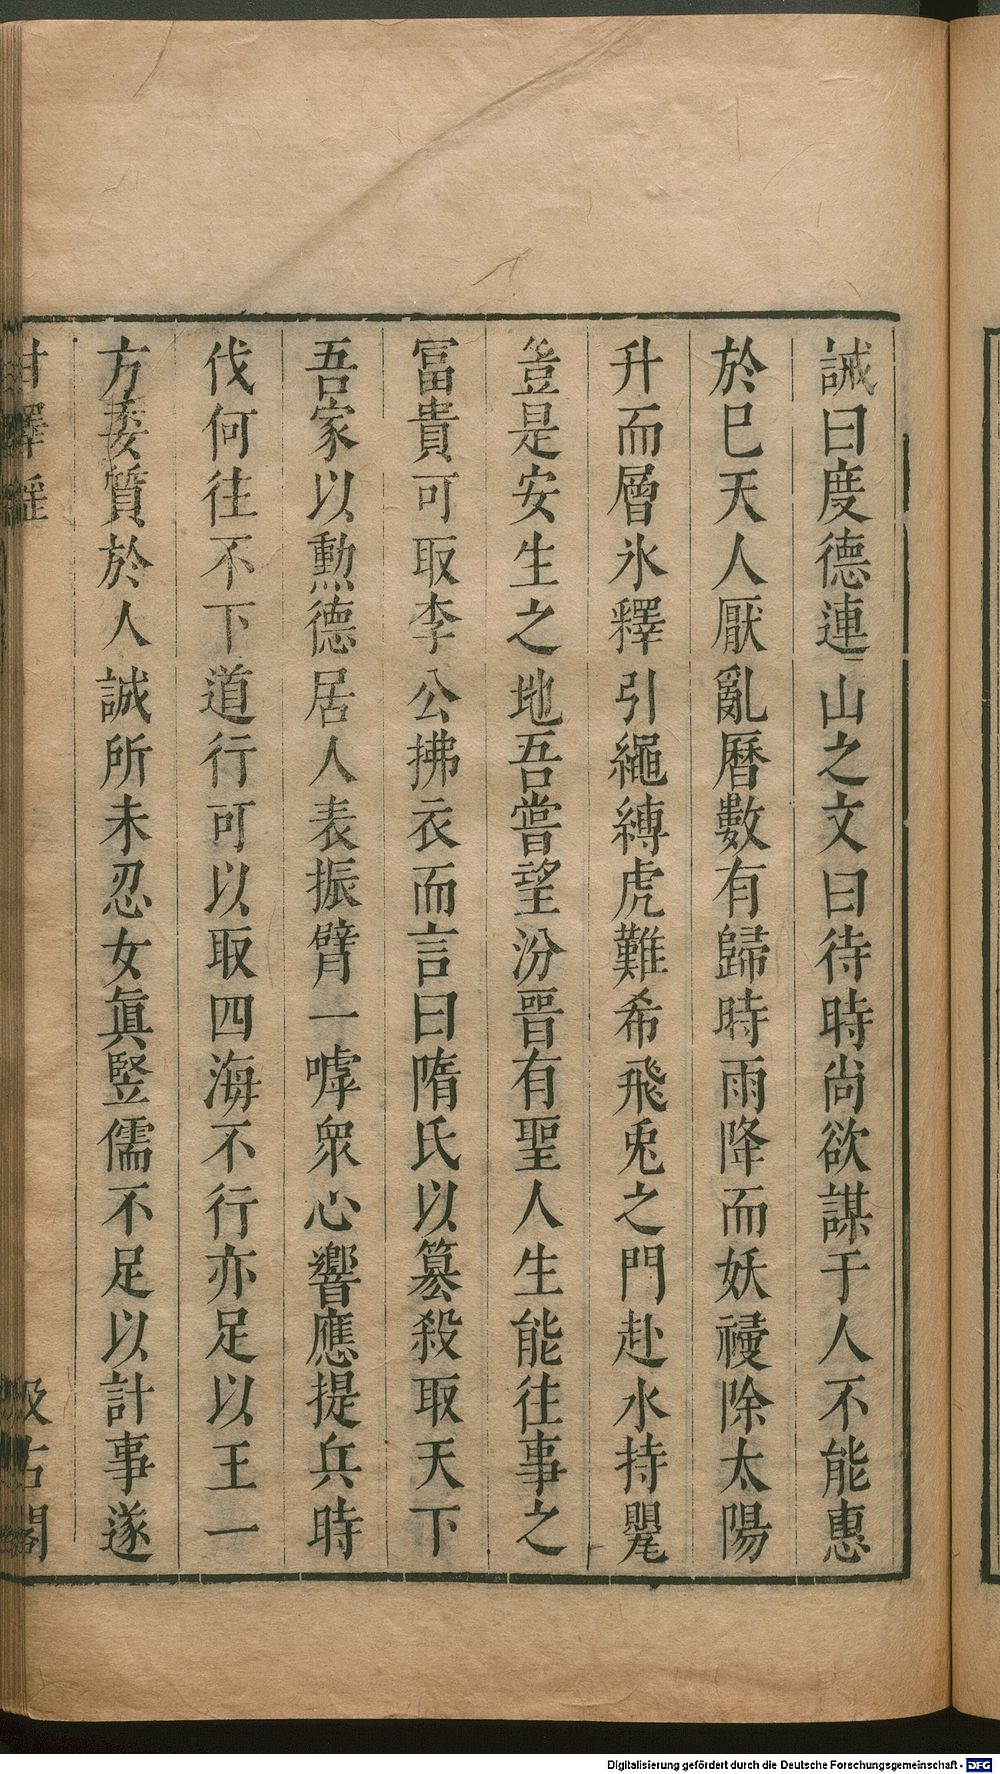 誡曰度德連山之文曰待時尚欲謀于人不能惠
於巳天人厭亂曆數有歸時雨降而妖祲除太陽
升而層氷釋引繩縛虎難希飛兎之門赴水持罋
豈是安生之地吾嘗望汾晉有聖人生能往事之
富貴可取李公拂衣而言曰隋氏以簒殺取天下
吾家以勲德居人表振臂一嘑衆心響應提兵時
伐何往不下道行可以取四海不行亦足以王一
方委質於人誠所未忍女眞竪儒不足以計事遂
甘澤謠
汲古閣
Digitalisierung gefördert durch die Deutsche Forschungsgemeinschaft - DFG